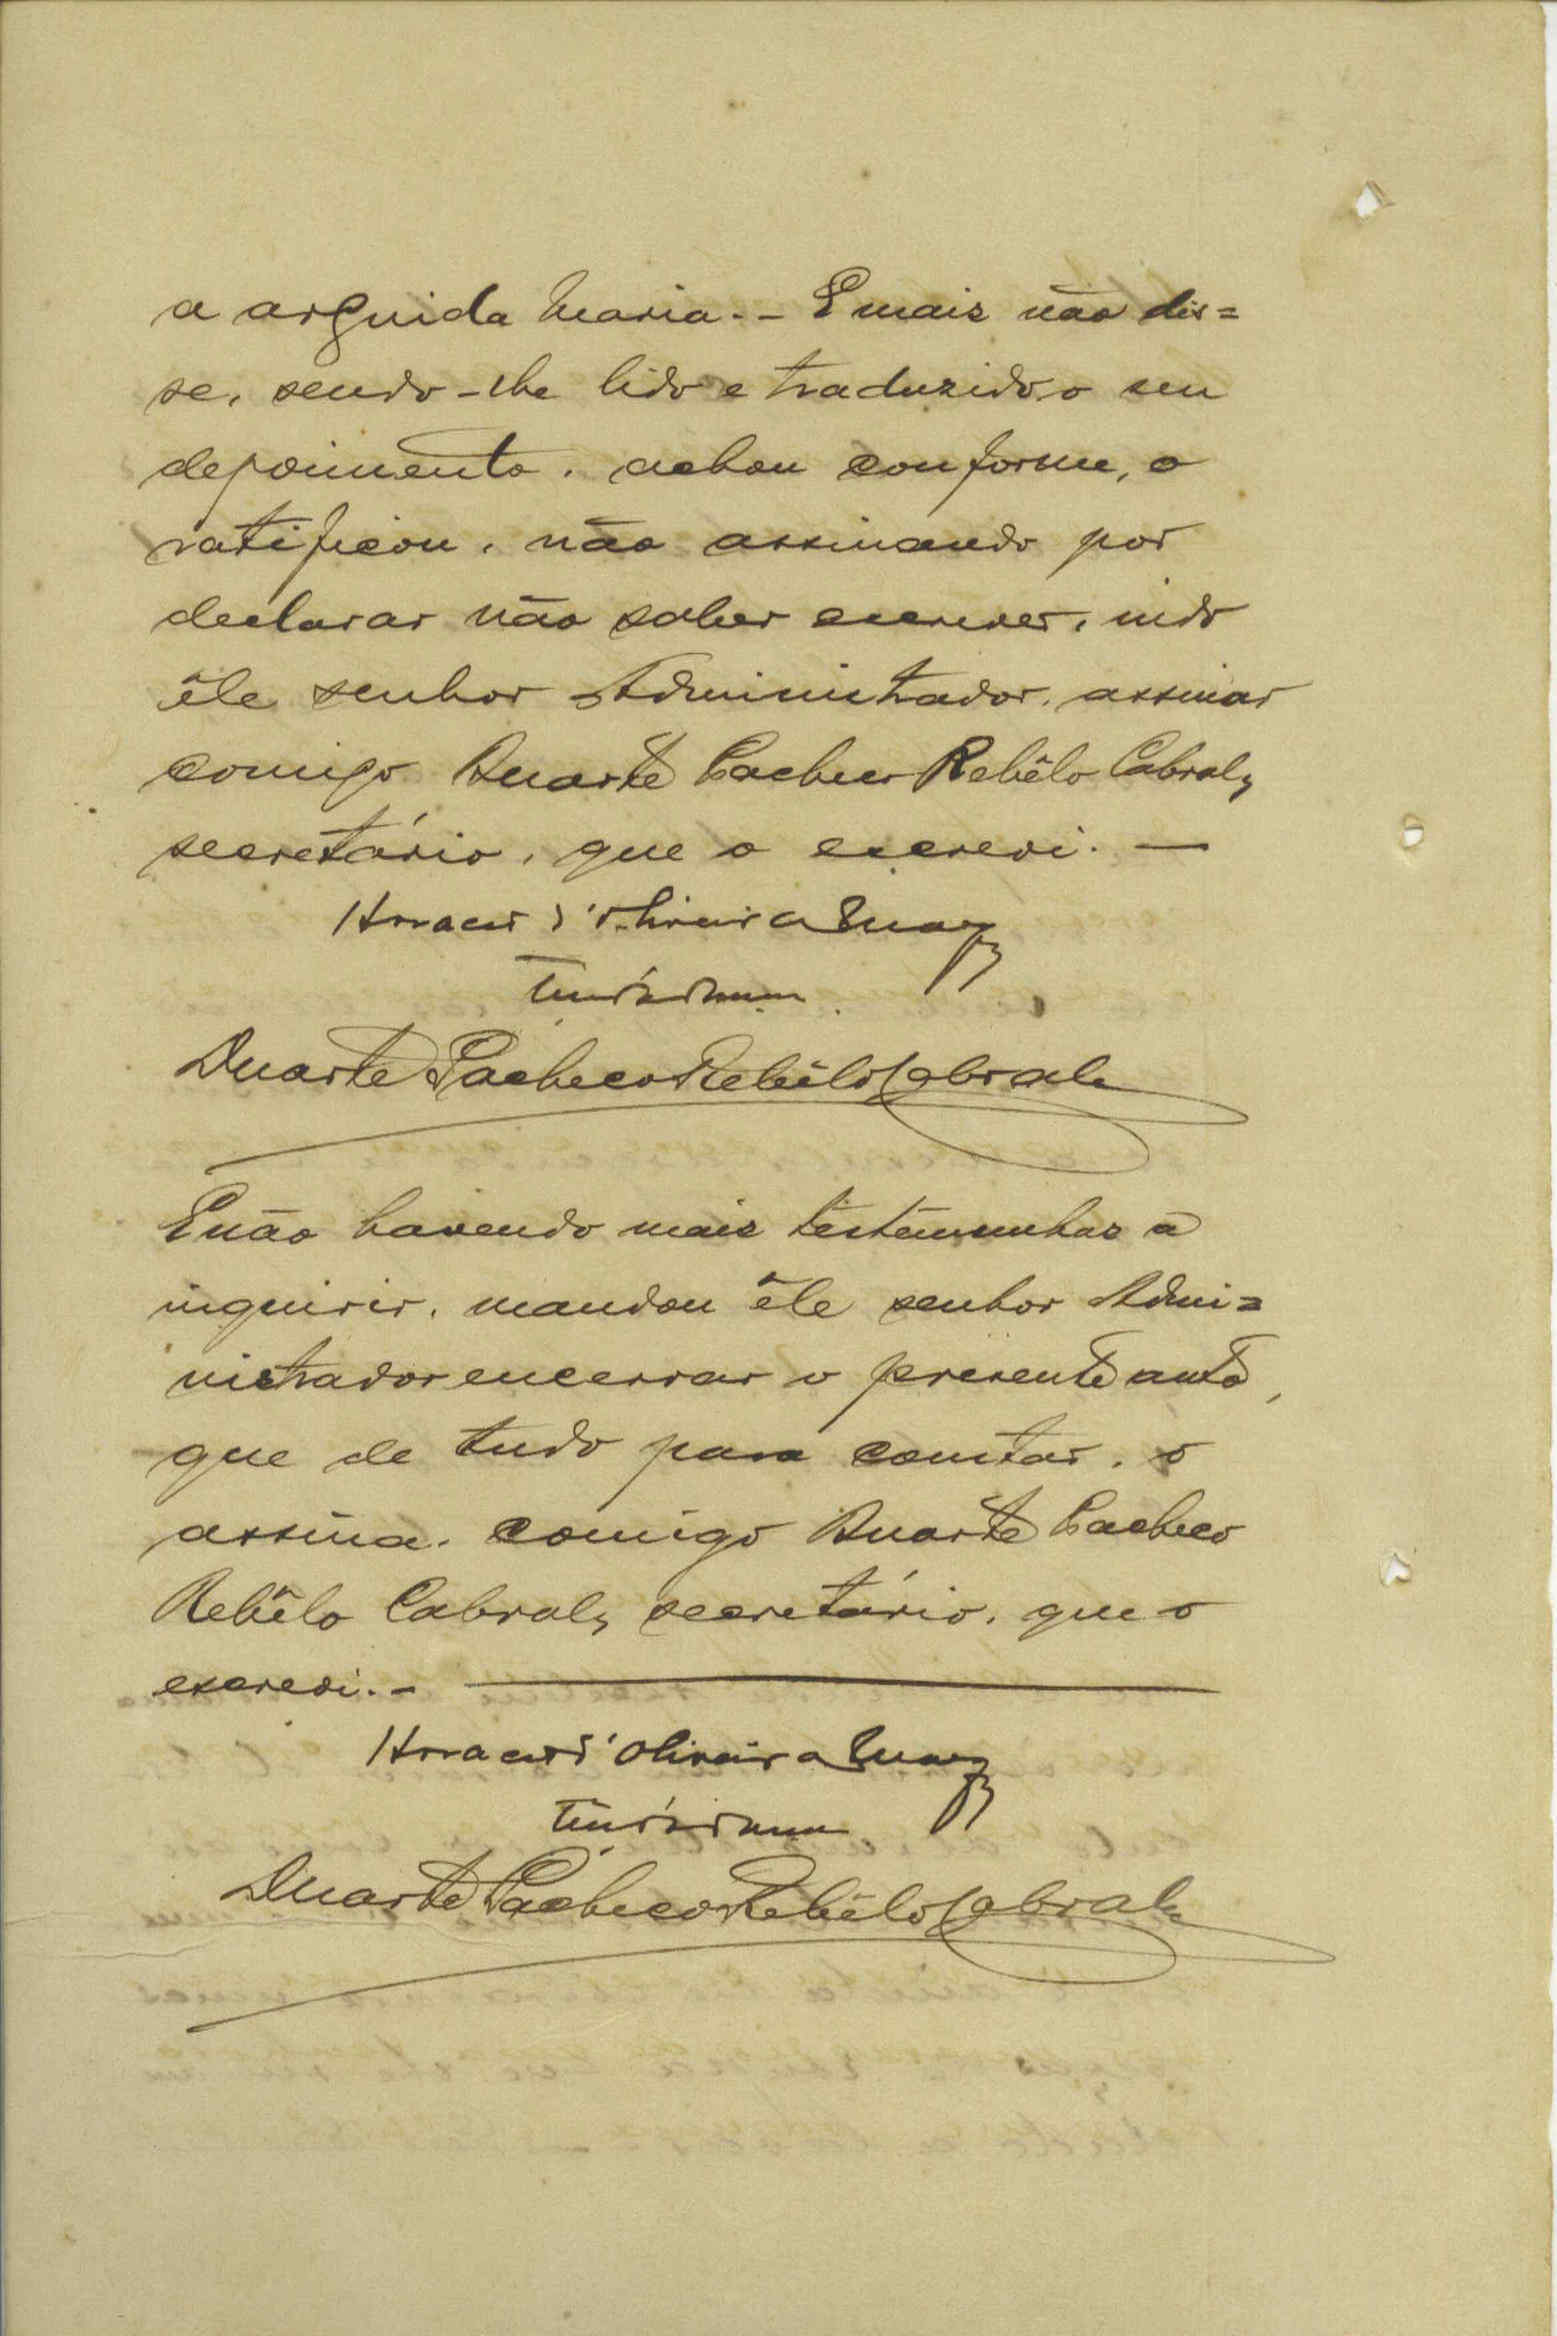 a arguida Maria. - E mais não dis=
se, sendo-lhe lido e traduzido o seu
depoimento, achou conforme, o
ratificou, não assinando por
declarar não saber escrever, indo
êle senhor Administrador, assinar
comigo Duarte Pacheco Rebêlo Cabral,
secretário, que o escrevi. —
Horacio d'Oliveira
Duarte Pacheco Rebêlo Cabral
E não havendo mais testemunhas a
inquirir, mandou êle senhor Admi=
nistrador encerrar o presente auto,
que de tudo para constar, o
assina, comigo Duarte Pacheco
Rebêlo Cabral, secretário, que o
escrevi. - —
Horacio d'Oliveira
Duarte Pacheco Rebêlo Cabral